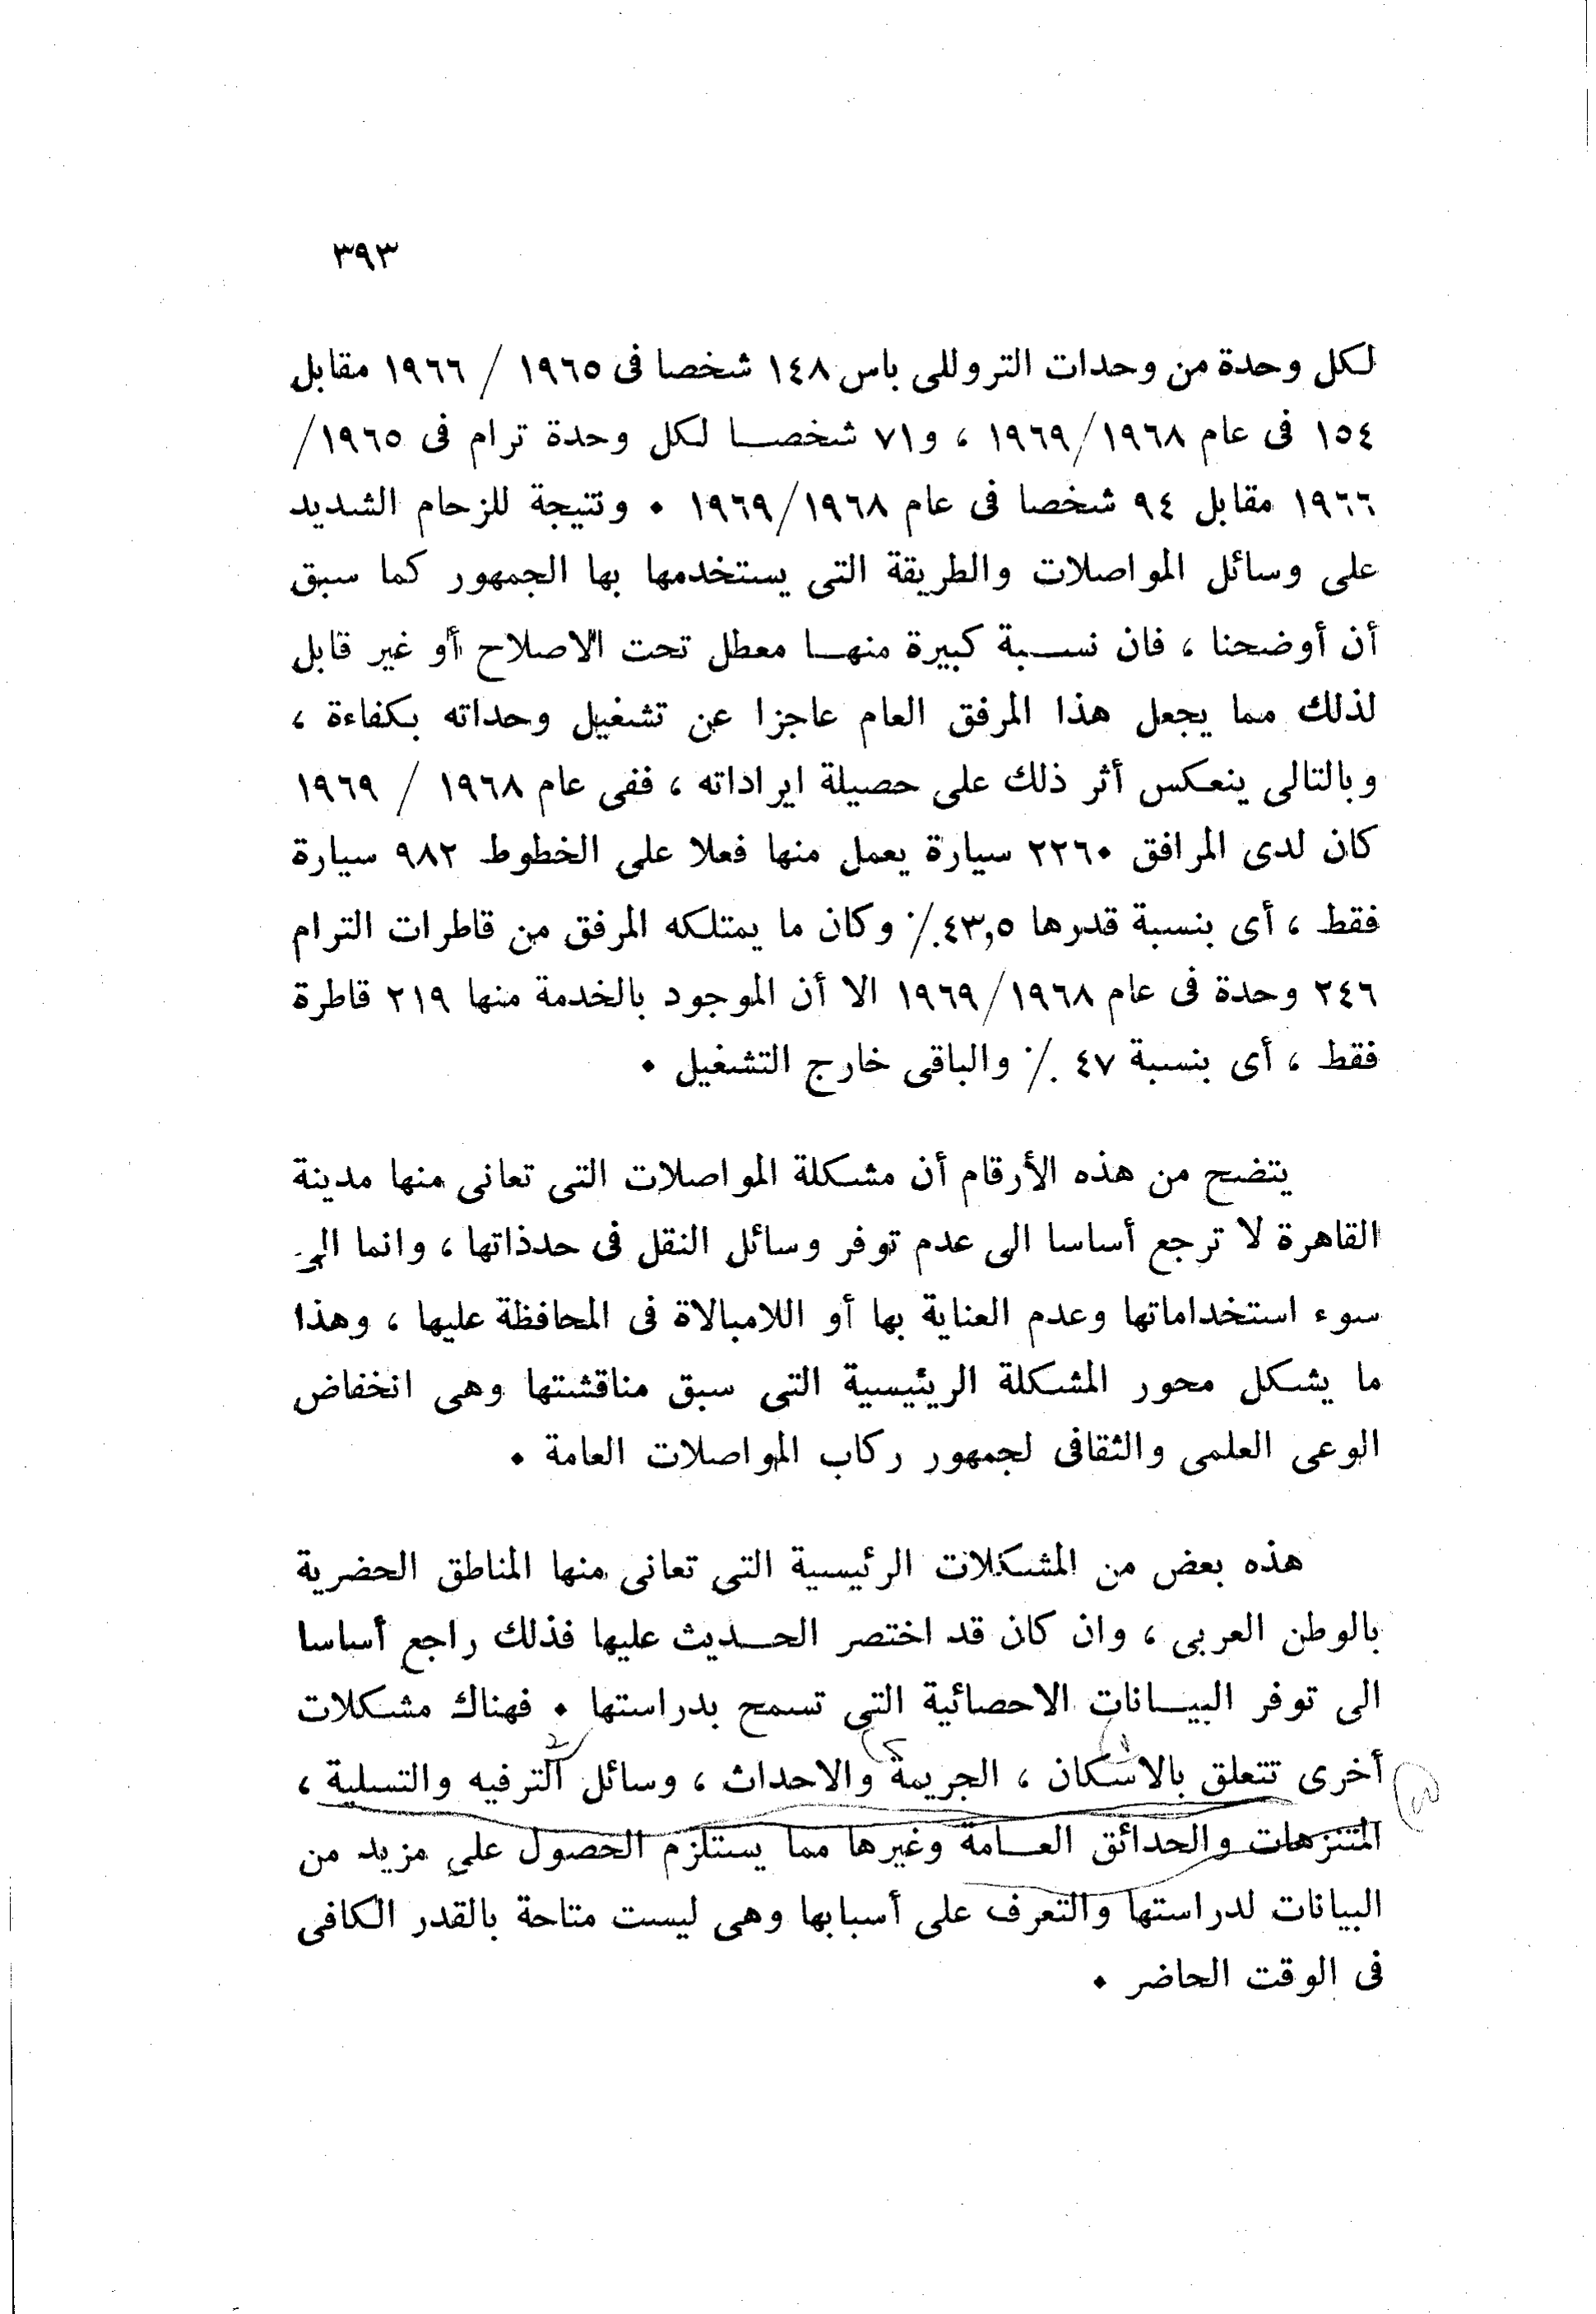 ٣٩٣
لكل وحدة من وحدات التروللى باس ١٤٨ شخصا فى ١٩٦٥ / ١٩٦٦ مقابل
١٥٤ فى عام ١٩٦٨/١٩٦٩ ، و٧١ شخصا لكل وحدة ترام فى ١٩٦٥/
١٩٦٦ مقابل ٩٤ شخصا فى عام ١٩٦٨/١٩٦٩ ٠ ونتيجة للزحام الشديد
على وسائل المواصلات والطريقة التى يستخدمها بها الجمهور كما سبق
أن أوضحنا ، فان نسبة كبيرة منها معطل تحت الاصلاح أو غير قابل
لذلك مما يجعل هذا المرفق العام عاجزا عن تشغيل وحداته بكفاءة ،
وبالتالى ينعكس أثر ذلك على حصيلة ايراداته ، ففى عام ١٩٦٨ / ١٩٦٩
كان لدى المرافق ٢٢٦٠ سيارة يعمل منها فعلا على الخطوط ٩٨٢ سيارة
فقط ، أى بنسبة قدرها ٤٣,٥٪ وكان ما يمتلكه المرفق من قاطرات الترام
٢٤٦ وحدة فى عام ١٩٦٨/١٩٦٩ الا أن الموجود بالخدمة منها ٢١٩ قاطرة
فقط ، أى بنسبة ٤٧ ٪ والباقى خارج التشغيل ٠
يتضح من هذه الأرقام أن مشكلة المواصلات التى تعانى منها مدينة
القاهرة لا ترجع أساسا الى عدم توفر وسائل النقل فى حدذاتها ، وانما الى
سوء استخداماتها وعدم العناية بها أو اللامبالاة فى المحافظة عليها ، وهذا
ما يشكل محور المشكلة الريئيسية التى سبق مناقشتها وهى انخفاض
الوعى العلمى والثقافى لجمهور ركاب المواصلات العامة ٠
هذه بعض من المشكلات الرئيسية التى تعانى منها المناطق الحضرية
بالوطن العربى ، وان كان قد اختصر الحديث عليها فذلك راجع أساسا
الى توفر البيانات الاحصائية التى تسمح بدراستها ٠ فهناك مشكلات
أخرى تتعلق بالاسكان ، الجريمة والاحداث ، وسائل الترفيه والتسلية ،
المتنزهات والحدائق العامة وغيرها مما يستلزم الحصول على مزيد من
البيانات لدراستها والتعرف على أسبابها وهى ليست متاحة بالقدر الكافى
فى الوقت الحاضر ٠